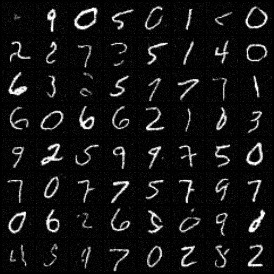 9 0 5 0 1 0
2 2 7 3 5 1 4 0
6 3 5 1 7 7 1
6 0 6 6 2 1 0 3
9 2 5 9 9 7 5 0
7 0 7 7 5 7 9 7
0 6 2 6 5 0 9
5 9 7 0 2 8 2